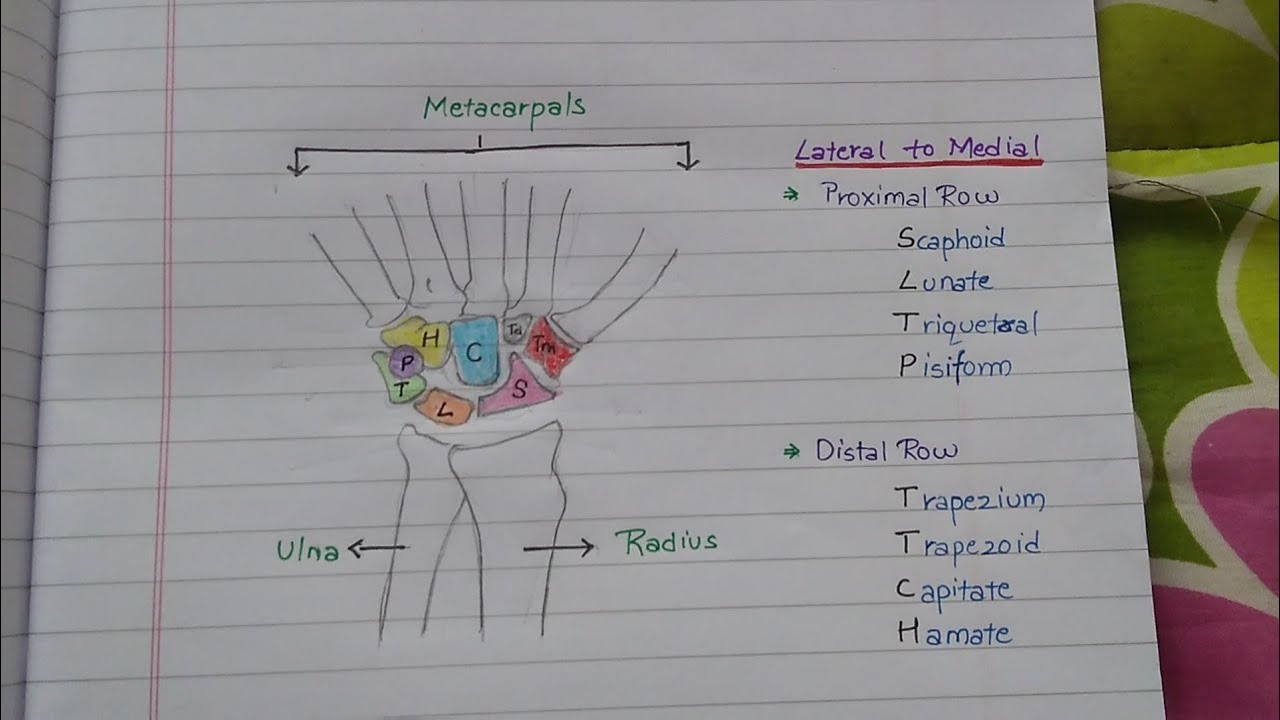 Metacarpals
H
C
Td
Tm
P
T
L
S
Ulna
Radius
Lateral to Medial
⇒ Proximal Row
Scaphoid
Lunate
Triquetral
Pisiform
⇒ Distal Row
Trapezium
Trapezoid
Capitate
Hamate